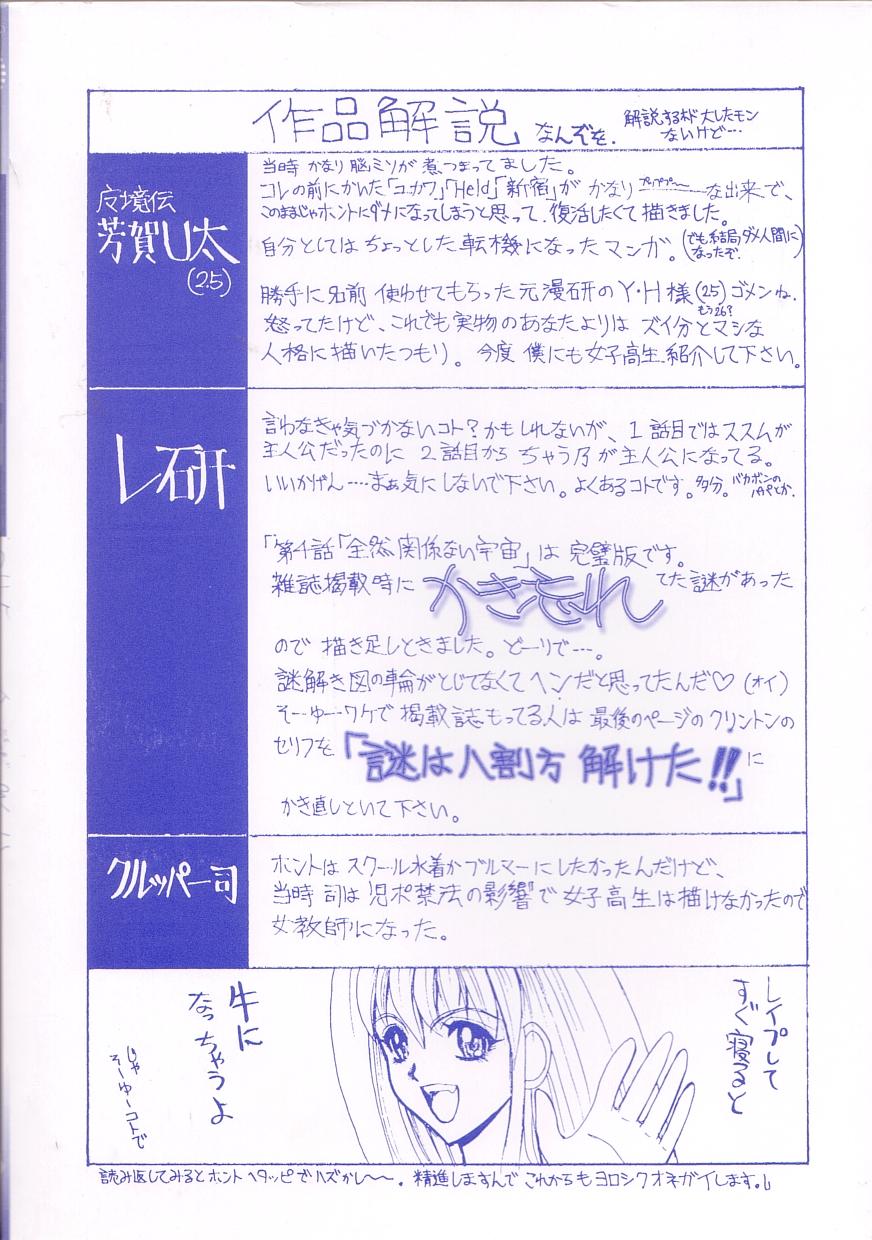 作品解説 なんぞを。
解説するホド大したモン
ないけど…
反境伝
芳賀U太
(25)
当時 かなり脳ミソが煮つまってました。
コレの前にかいた「ユカワ」「Held」「新宿」が かなり な出来で、
このままじゃホントにダメになってしまうと思って、復活したくて描きました。
自分としてはちょっとした転機になったマンガ。(でも結局ダメ人間に
なったぞ。)
勝手に名前使わせてもらった元漫研のY・H様(25)ゴメンね。
もう26?
怒ってたけど、これでも実物のあなたよりは ズイ分とマシな
人格に描いたつもり。今度 僕にも女子高生紹介して下さい。
レ研
言わなきゃ気づかないコト?かもしれないが、1話目ではススムが
主人公だったのに 2話目から ちゃう乃が主人公になってる。
いいかげん……まぁ気にしないで下さい。よくあるコトです。多分。バカボンの
パパとか。
「第4話「全然関係ない宇宙」は 完璧版です。
雑誌掲載時に かき忘れてた謎があった
ので 描き足しときました。どーりで…。
謎解き図の輪がとじてなくてヘンだと思ってたんだ♡(オイ)
そーゆーワケで 掲載誌もってる人は 最後のページのクリントンの
セリフを 「謎は八割方 解けた!!」に
かき直しといて下さい。
クルッパー司
ホントは スクール水着かブルマーにしたかったんだけど、
当時 司は"児ポ禁法の影響"で 女子高生は描けなかったので
女教師になった。
レイプして
すぐ寝ると
牛に
なっちゃうよ
じゃ
そーゆーコトで
読み返してみるとホント ヘタッピでハズかし〜〜。精進しますんで これからも ヨロシクオネガイします。